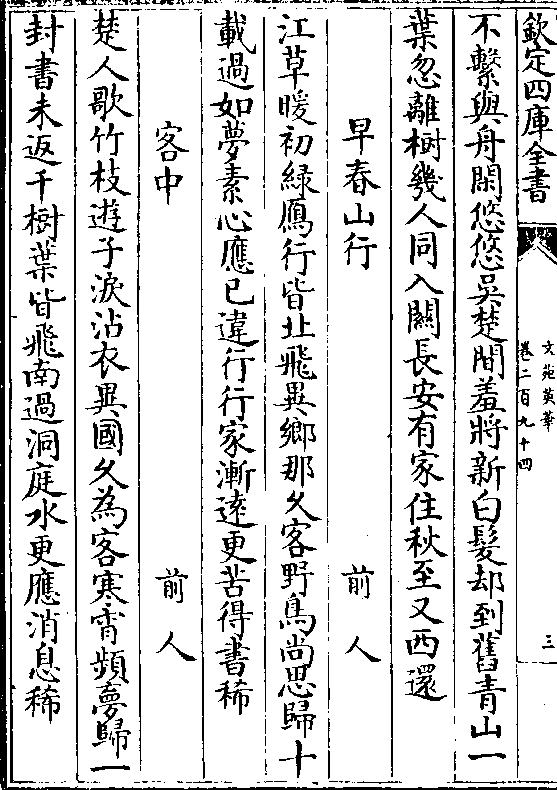 欽定四庫全書
文苑英華
卷二百九十四
三
不繫與舟閑悠悠吳楚間羞將新白髮却到舊青山一
葉忽離樹幾人同入關長安有家住秋至又西還
早春山行
前人
江草暖初緑鴈行皆北飛異鄉那久客野鳥尚思歸十
載過如夢素心應已違行行家漸逺更苦得書稀
客中
前人
楚人歌竹枝遊子淚沾衣異國久為客寒宵頻夢歸一
封書未返千樹葉皆飛南過洞庭水更應消息稀